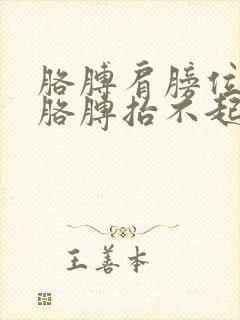 胳膊肩膀位
胳膊抬不起
王善本